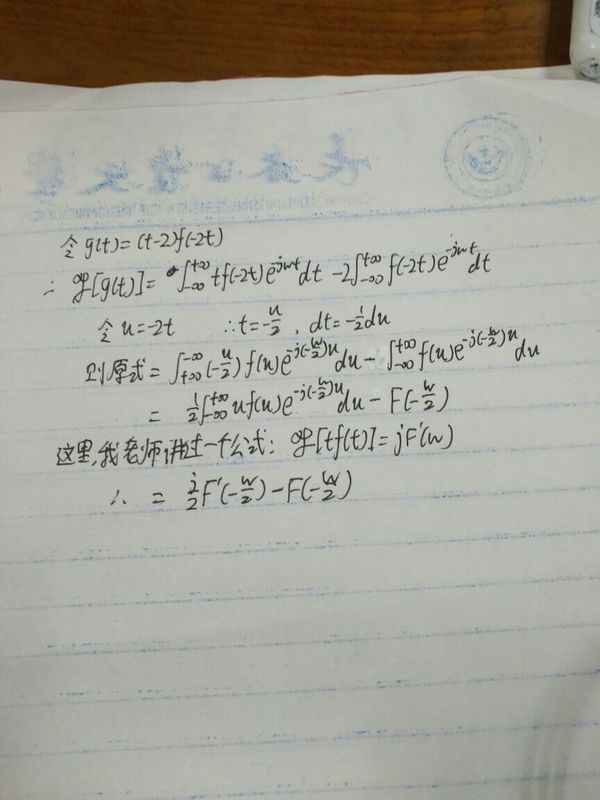 令 g(t)=(t-2)f(-2t)
∴ ℱ[g(t)]= ∫_{-∞}^{+∞} tf(-2t)e^{-jwt}dt -2∫_{-∞}^{+∞} f(-2t)e^{-jwt}dt
令 u=-2t ∴t=-\frac{u}{2}, dt=-\frac{1}{2}du
则原式= ∫_{+∞}^{-∞}(-\frac{u}{2})f(u)e^{-j(-\frac{w}{2})u}du-∫_{-∞}^{+∞}f(u)e^{-j(-\frac{w}{2})u}du
= \frac{1}{2}∫_{-∞}^{+∞}uf(u)e^{-j(-\frac{w}{2})u}du-F(-\frac{w}{2})
这里,我老师讲过一个公式: ℱ[tf(t)]=jF'(w)
∴ = \frac{j}{2}F'(-\frac{w}{2})-F(-\frac{w}{2})